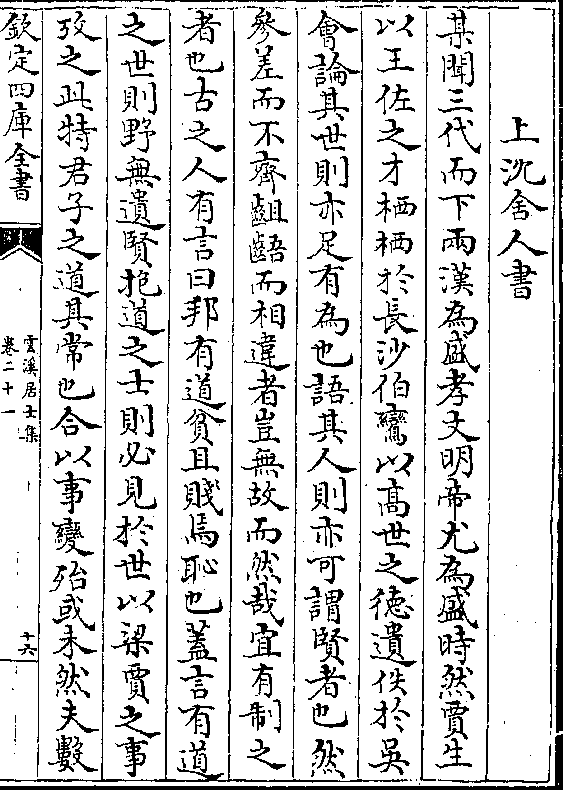 上沈舍人書
某聞三代而下兩漢為盛孝文明帝尤為盛時然賈生
以王佐之才栖栖於長沙伯鸞以髙世之徳遺佚於吳
會論其世則亦足有為也語其人則亦可謂賢者也然
參差而不齊齟齬而相違者豈無故而然哉宜有制之
者也古之人有言曰邦有道貧且賤焉恥也蓋言有道
之世則野無遺賢抱道之士則必見於世以梁賈之事
攷之此特君子之道其常也合以事變殆或未然夫數
欽定四庫全書
雲溪居士集
卷二十一
十六